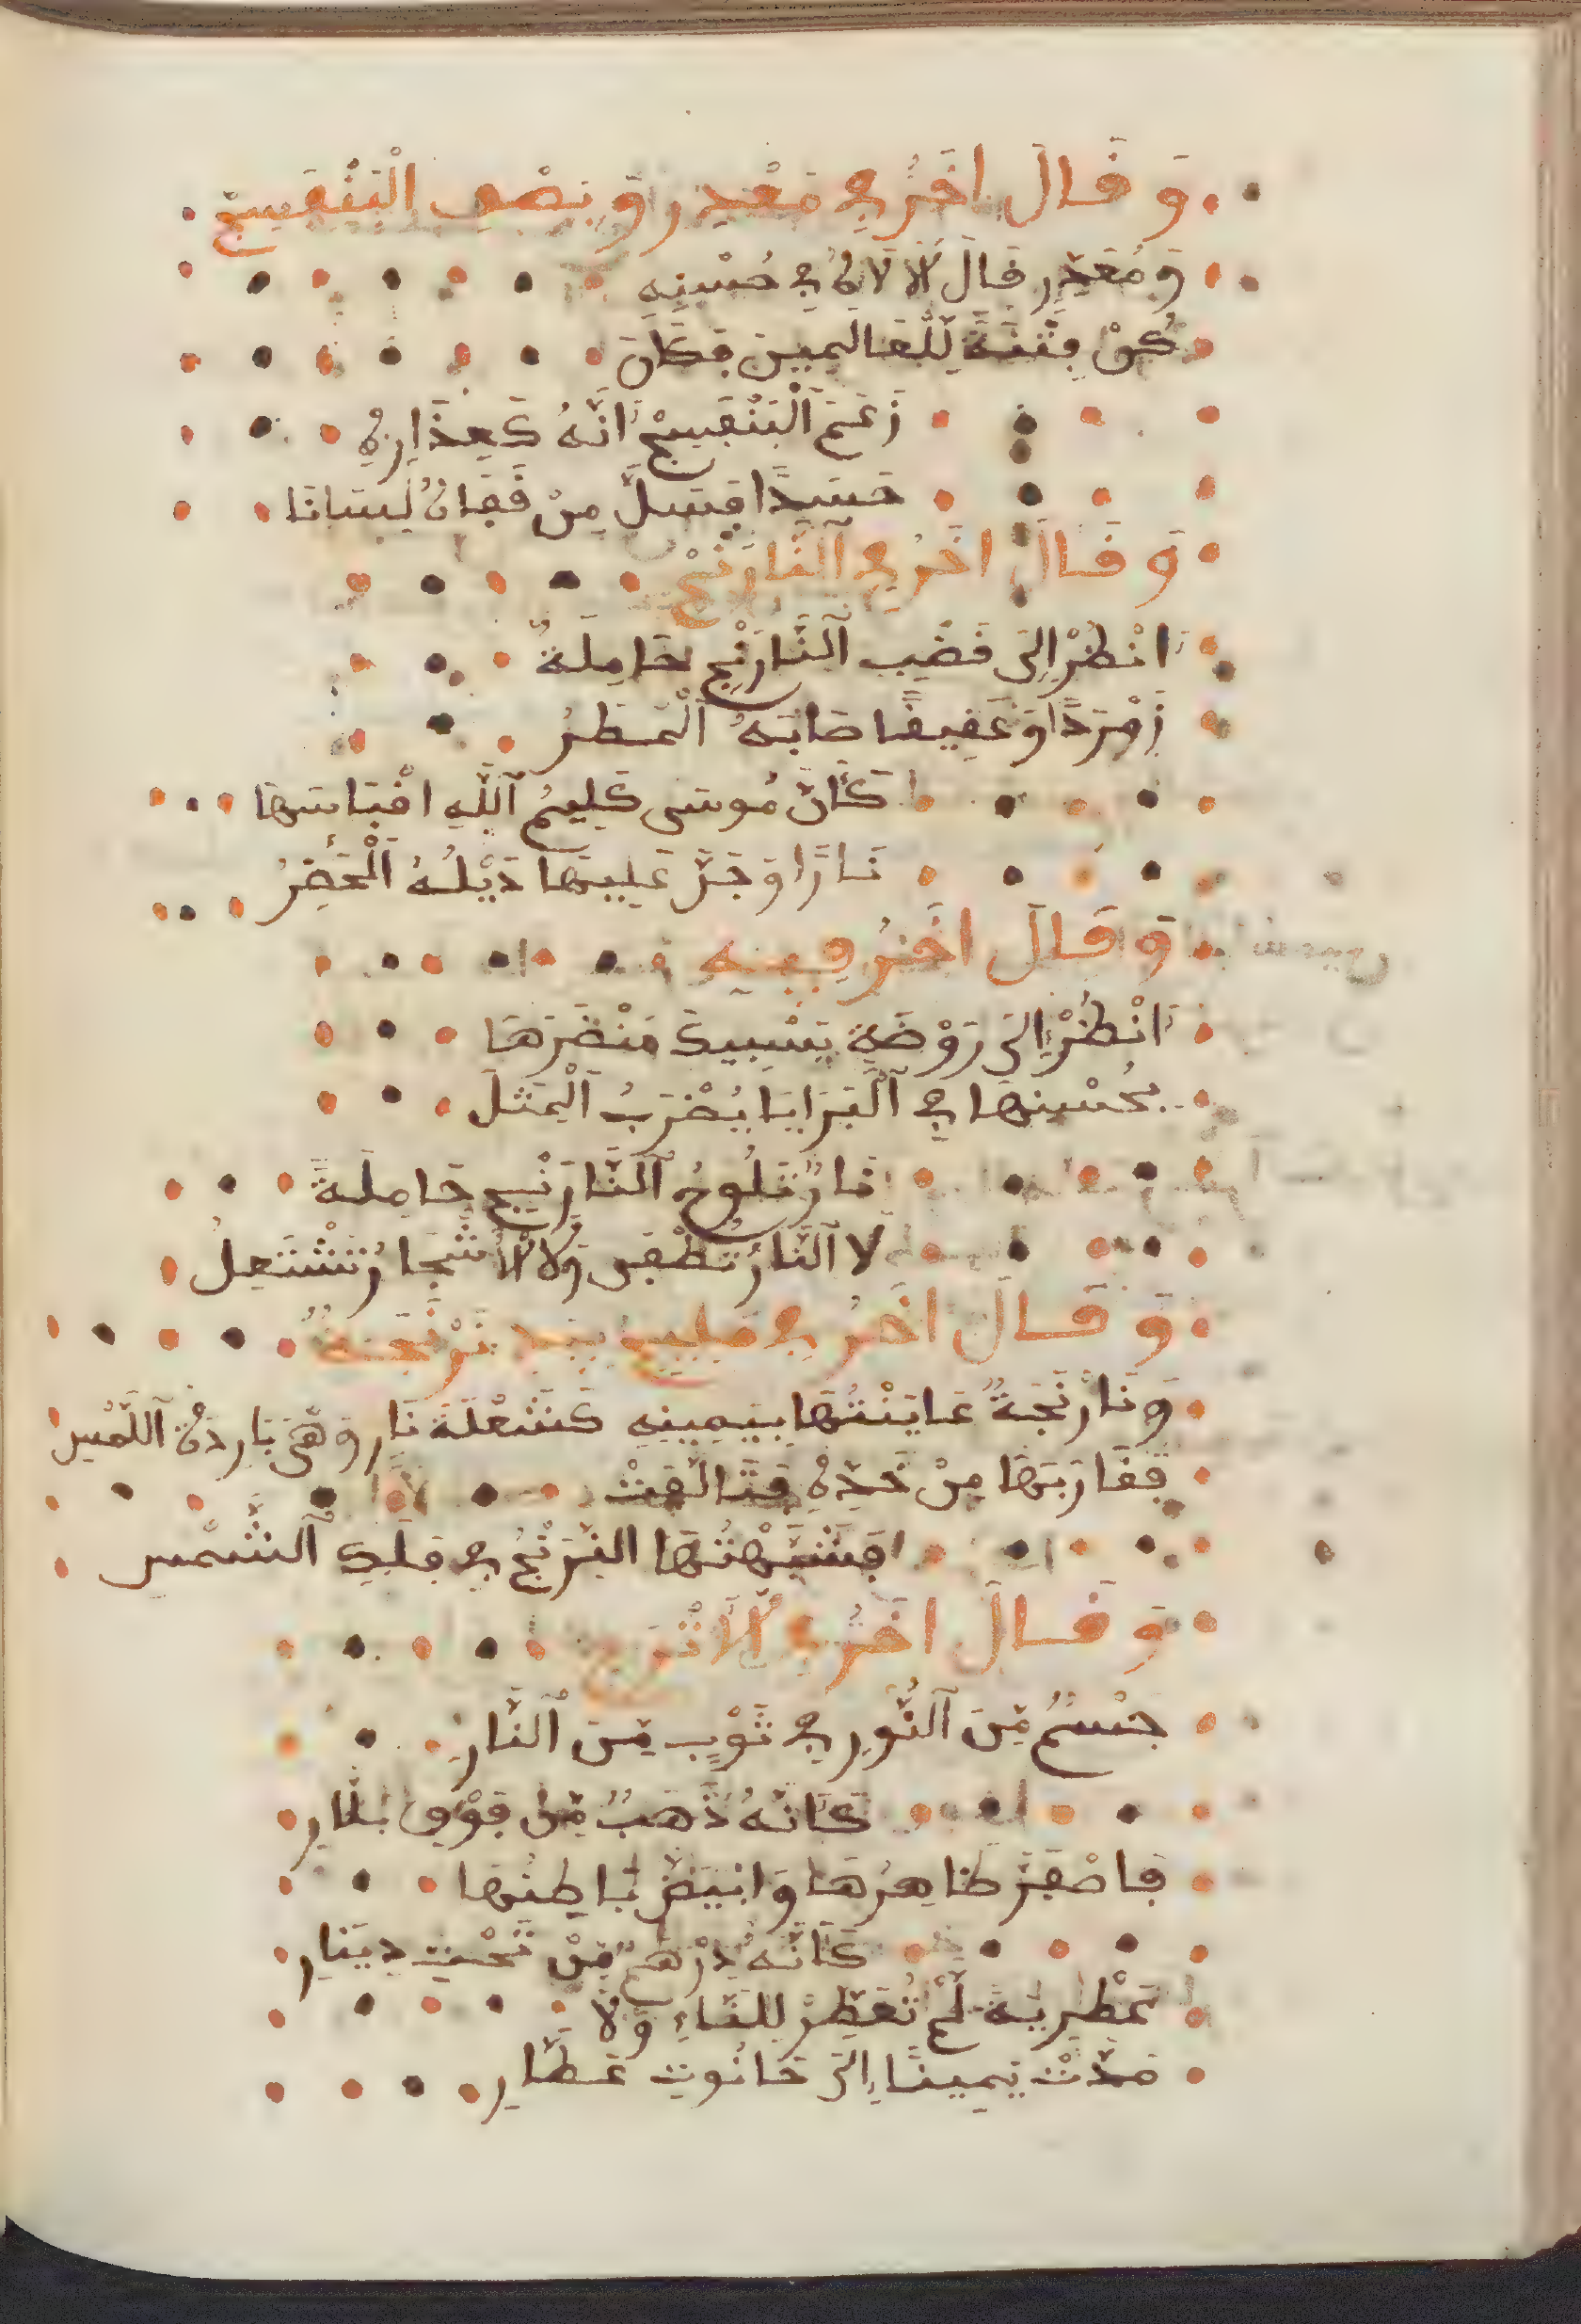 وَقَالَ اخَرُ فِي مَعْذِرٍ وَبَصْفِ الْبَنَفْسَجْ
وَمُعَذِّرٍ قَالَ الْاِلَاهُ فِي حُسْنِهِ
كُنْ فِتْنَةً لِّلْعَالَمِينَ فَكَانَ
زَعَمَ اَلْبَنَفْسَجْ اَنَّهُ كَعِذَارِهِ
حَسَدًا فَسَلَّ مِنْ قَفَاهُ لِسَانَا
وَقَالَ اخَرُ فِي اَلنَّارَنْجْ
اَنْظُرْ اِلَى قَضِيبِ اَلنَّارَنْجِ حَامِلَةً
زَمْرَدًا وَعَقِيقًا صَابَهُ اَلْمَطَرُ
كَأَنَّ مُوسَى كَلِيمُ اَللَّهِ اقْبَاسَهَا
نَارًا وَجَرَّ عَلَيْهَا ذَيْلَهُ اَلْخَضِرُ
وَقَالَ اخَرُ فِيهِ
اَنْظُرْ اِلَى رَوْضَةٍ يَسْبِيكَ مَنْضَرُهَا
بِحُسْنِهَا فِي اَلْبَرَايَا يُضْرَبُ اَلْمَثَلَ
نَارٌ تَلُوحُ اَلنَّارَنْجِ حَامِلَةً
لَا اَلنَّارُ تُطْفَى وَلَا الْاَشْجَارُ تَشْتَعِلُ
وَقَالَ اخَرُ فِي مَلِيحٍ بِيَدِ نَرَنْجَةٌ
وَنَارَنْجَةٌ عَايَنْتُهَا بِيَمِينِهِ كَشَعْلَةَ نَارٍ وَهِيَ بَارِدَةُ اَللَّمْسِ
فَقَارَبَهَا مِنْ خَدِّهِ فَتَالَّفَتْ
فَشَبَّهْتُهَا الْمِرِّيخُ فِي فَلَكِ اَلشَّمْسِ
وَقَالَ اخَرُ فِي الْاَتْرَجِ
جِسْمٌ مِّنَ اَلنُّورِ فِي ثَوْبٍ مِّنَ اَلنَّارِ
كَاَنَّهُ ذَهَبٌ مِّنْ فَوْقِ بَلَّارِ
فَاصْفَرَّ ظَاهِرُهَا وَابْيَضَّ بَاطِنُهَا
كَاَنَّهُ دِرْهَمٌ مِّنْ تَحْتِ دِينَارِ
عَطْرِيَةً لَمْ تُعَطِّرْ لِلِّقَاءِ وَلَا
مَدَّتْ يَمِينًا اِلَى حَانُوتِ عَطَّارِ